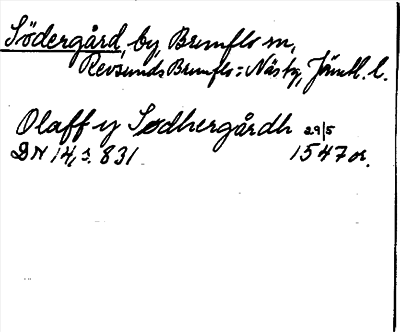 Södergård, by, Brunflo sn,
Revsunds Brunflo= Näs tg, Jämtl. l.
Olaff y Sødhergårdh 29/5
DN 14, s. 831 1547 or.